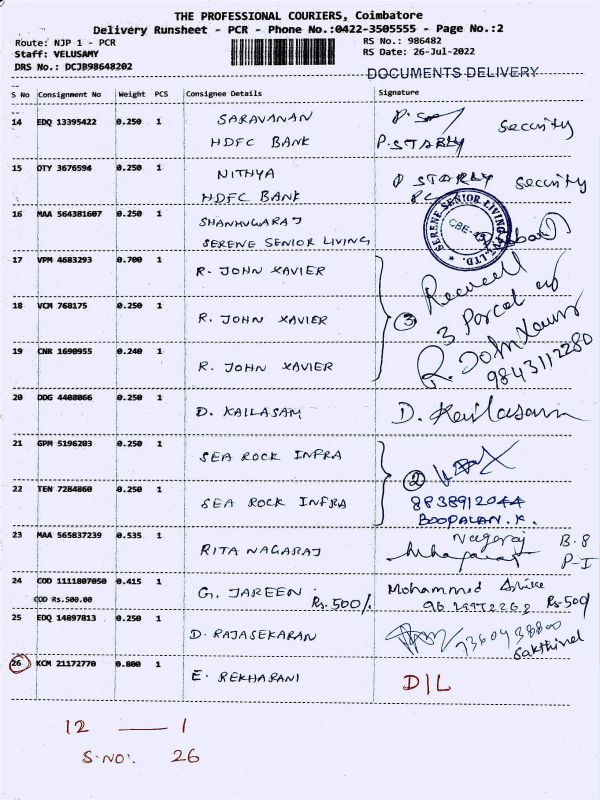 THE PROFESSIONAL COURIERS, Coimbatore
Delivery Runsheet - PCR - Phone No.:0422-3505555 - Page No.:2
Route: NJP 1 - PCR
RS No.: 986482
Staff: VELUSAMY
RS Date: 26-Jul-2022
DRS No.: DCJB98648202
DOCUMENTS DELIVERY
S No Consignment No Weight PCS Consignee Details Signature
14 EDQ 13395422 0.250 1 SARAVANAN
HDFC BANK P.STARLY Security
15 OTY 3676594 0.250 1 NITHYA P STARLY Security
HDFC BANK
16 MAA 564381607 0.250 1 SHANHUGARAJ
SERENE SENIOR LIVING
SERENE SENIOR LIVING PVT. LTD. CBE-45
17 VPM 4683293 0.700 1 R. JOHN XAVIER
18 VCM 768175 0.250 1 R. JOHN XAVIER
19 CNR 1690955 0.240 1 R. JOHN XAVIER
3 Received
3 Parcel
R. John Xavier
9843112280
20 DDG 4408066 0.250 1 D. KAILASAM D. Kailasam
21 GPM 5196203 0.250 1 SEA ROCK INFRA
2
22 TEN 7284860 0.250 1 SEA ROCK INFRA 8838912044
BOOPALAN.K.
23 MAA 565837239 0.535 1 RITA NAGARAJ Nagaraj B.8
P-I
24 COD 1111807050 0.415 1 G. JAREEN Mohammed
COD Rs.500.00 Rs.500/. Rs.500/
25 EDQ 14897813 0.250 1 D. RAJASEKARAN 7360438800
Sakthivel
26 KCM 21172770 0.800 1 E. REKHARANI D/L
12 — 1
S.NO:. 26